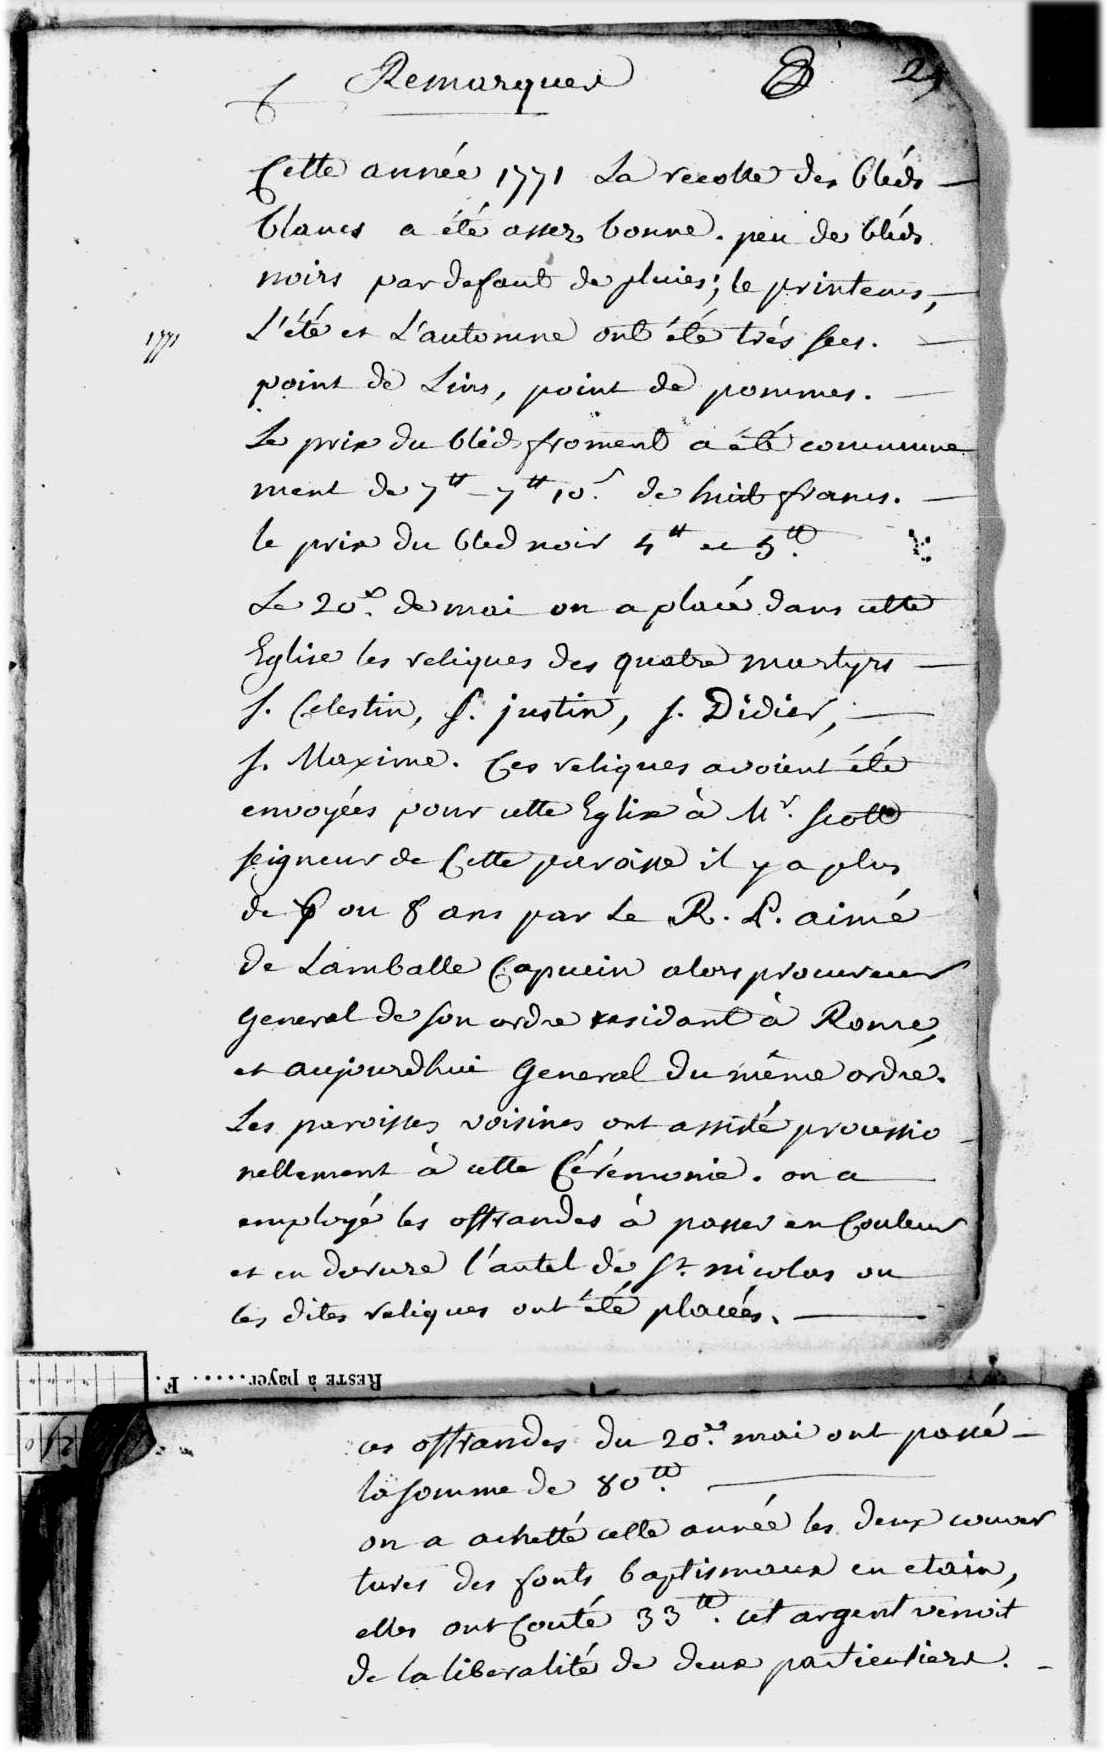 Remarques 24
Cette année 1771 La recolte des bléds
blancs a été assez bonne. peu de bléds
noirs par defaut de pluies; le printems,
1771
L'été et L'automne ont été très secs.
point de Lins, point de pommes.
Le prix du bled froment a été commune
ment de 7tt - 7tt 10s de huit francs.
le prix du bled noir 4tt et 5tt.
Le 20e. de mai on a placé dans cette
Eglise les reliques des quatre martyrs
S. Celestin, S. justin, S. Didier,
S. Maxime. Ces reliques avoient été
envoyées pour cette Eglise à Mr. Scott
seigneur de Cette paroisse il y a plus
de ou 8 ans par Le R. P. aimé
de Lamballe Capucin alors procureur
General de son ordre residant à Rome,
et aujourdhui General du même ordre.
Les paroisses voisines ont assisté processio
nellement à cette Cérémonie. on a
employé les offrandes à passer en Couleur
et en dorure l'autel de St. nicolas ou
les dites reliques ont été placées.
RESTE à payer...... F.
ces offrandes du 20e. mai ont passé
la somme de 80tt.
on a achetté cette année les deux couver
tures des fonts baptismaux en etain,
elles ont Couté 33tt. cet argent venoit
de la liberalité de deux particuliers.